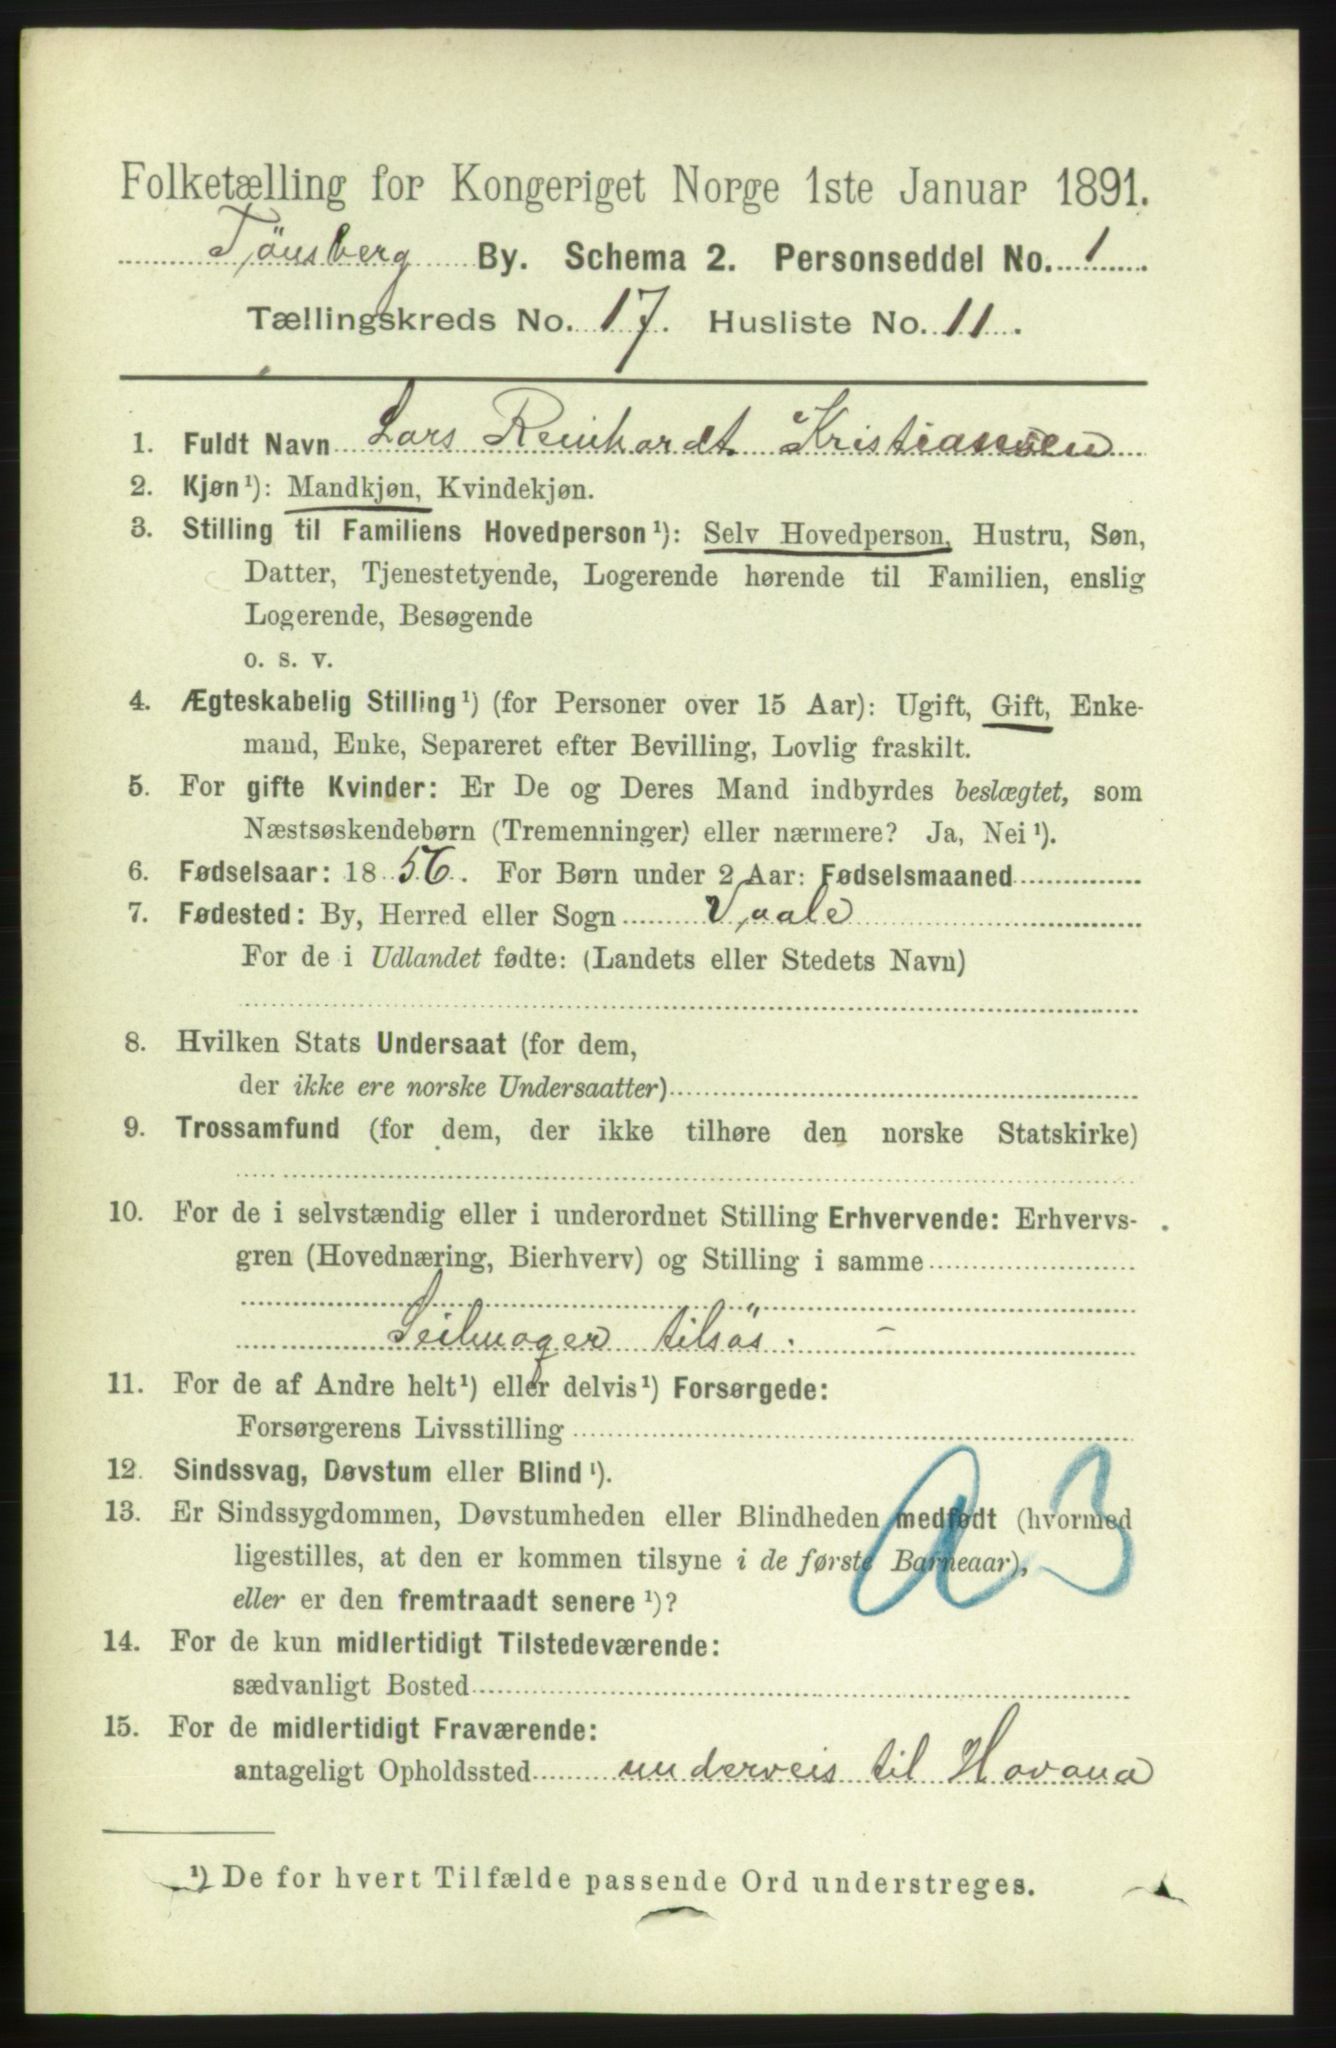 Folketælling for Kongeriget Norge 1ste Januar 1891.
Tønsberg By. Schema 2. Personseddel No. 1
Tællingskreds No. 17. Husliste No. 11.
1. Fuldt Navn Lars Reinhardt Kristiansen
2. Kjøn¹): Mandkjøn, Kvindekjøn.
3. Stilling til Familiens Hovedperson¹): Selv Hovedperson, Hustru, Søn,
Datter, Tjenestetyende, Logerende hørende til Familien, enslig
Logerende, Besøgende
o. s. v.
4. Ægteskabelig Stilling¹) (for Personer over 15 Aar): Ugift, Gift, Enke-
mand, Enke, Separeret efter Bevilling, Lovlig fraskilt.
5. For gifte Kvinder: Er De og Deres Mand indbyrdes beslægtet, som
Næstsøskendebørn (Tremenninger) eller nærmere? Ja, Nei¹).
6. Fødselsaar: 1856. For Børn under 2 Aar: Fødselsmaaned
7. Fødested: By, Herred eller Sogn Vaale
For de i Udlandet fødte: (Landets eller Stedets Navn)
8. Hvilken Stats Undersaat (for dem,
der ikke ere norske Undersaatter)
9. Trossamfund (for dem, der ikke tilhøre den norske Statskirke)
10. For de i selvstændig eller i underordnet Stilling Erhvervende: Erhvervs-
gren (Hovednæring, Bierhverv) og Stilling i samme
Seilmager tilsös. –
11. For de af Andre helt¹) eller delvis¹) Forsørgede:
Forsørgerens Livsstilling
12. Sindssvag, Døvstum eller Blind¹).
13. Er Sindssygdommen, Døvstumheden eller Blindheden medfødt (hvormed
ligestilles, at den er kommen tilsyne i de første Barneaar),
eller er den fremtraadt senere¹)?
a 3
14. For de kun midlertidigt Tilstedeværende:
sædvanligt Bosted
15. For de midlertidigt Fraværende:
antageligt Opholdssted underveis til Havana
¹) De for hvert Tilfælde passende Ord understreges.